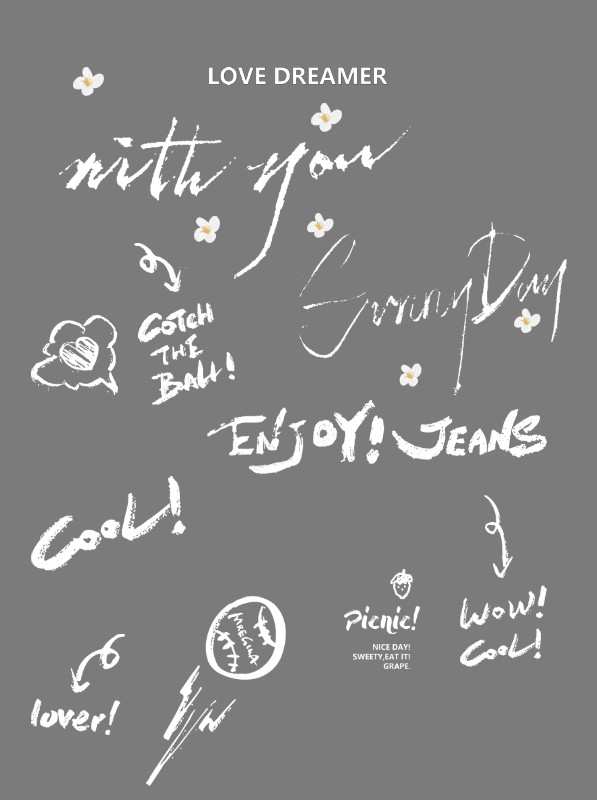 LOVE DREAMER
with you
Sunny Day
COTCH
THE
BALL!
ENJOY! JEANS
COOL!
WOW!
COOL!
Picnic!
NICE DAY!
SWEETY,EAT IT!
GRAPE.
lover!